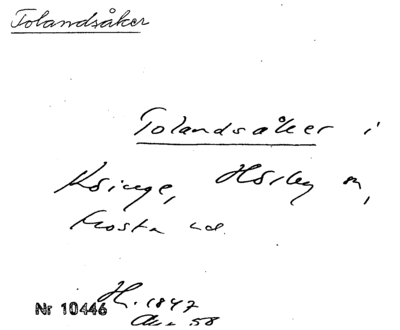 Tolandsåker
Tolandsåker i
Ksinge, Hörby sn,
Frosta hd.
H. 1847
Nr 10446
58